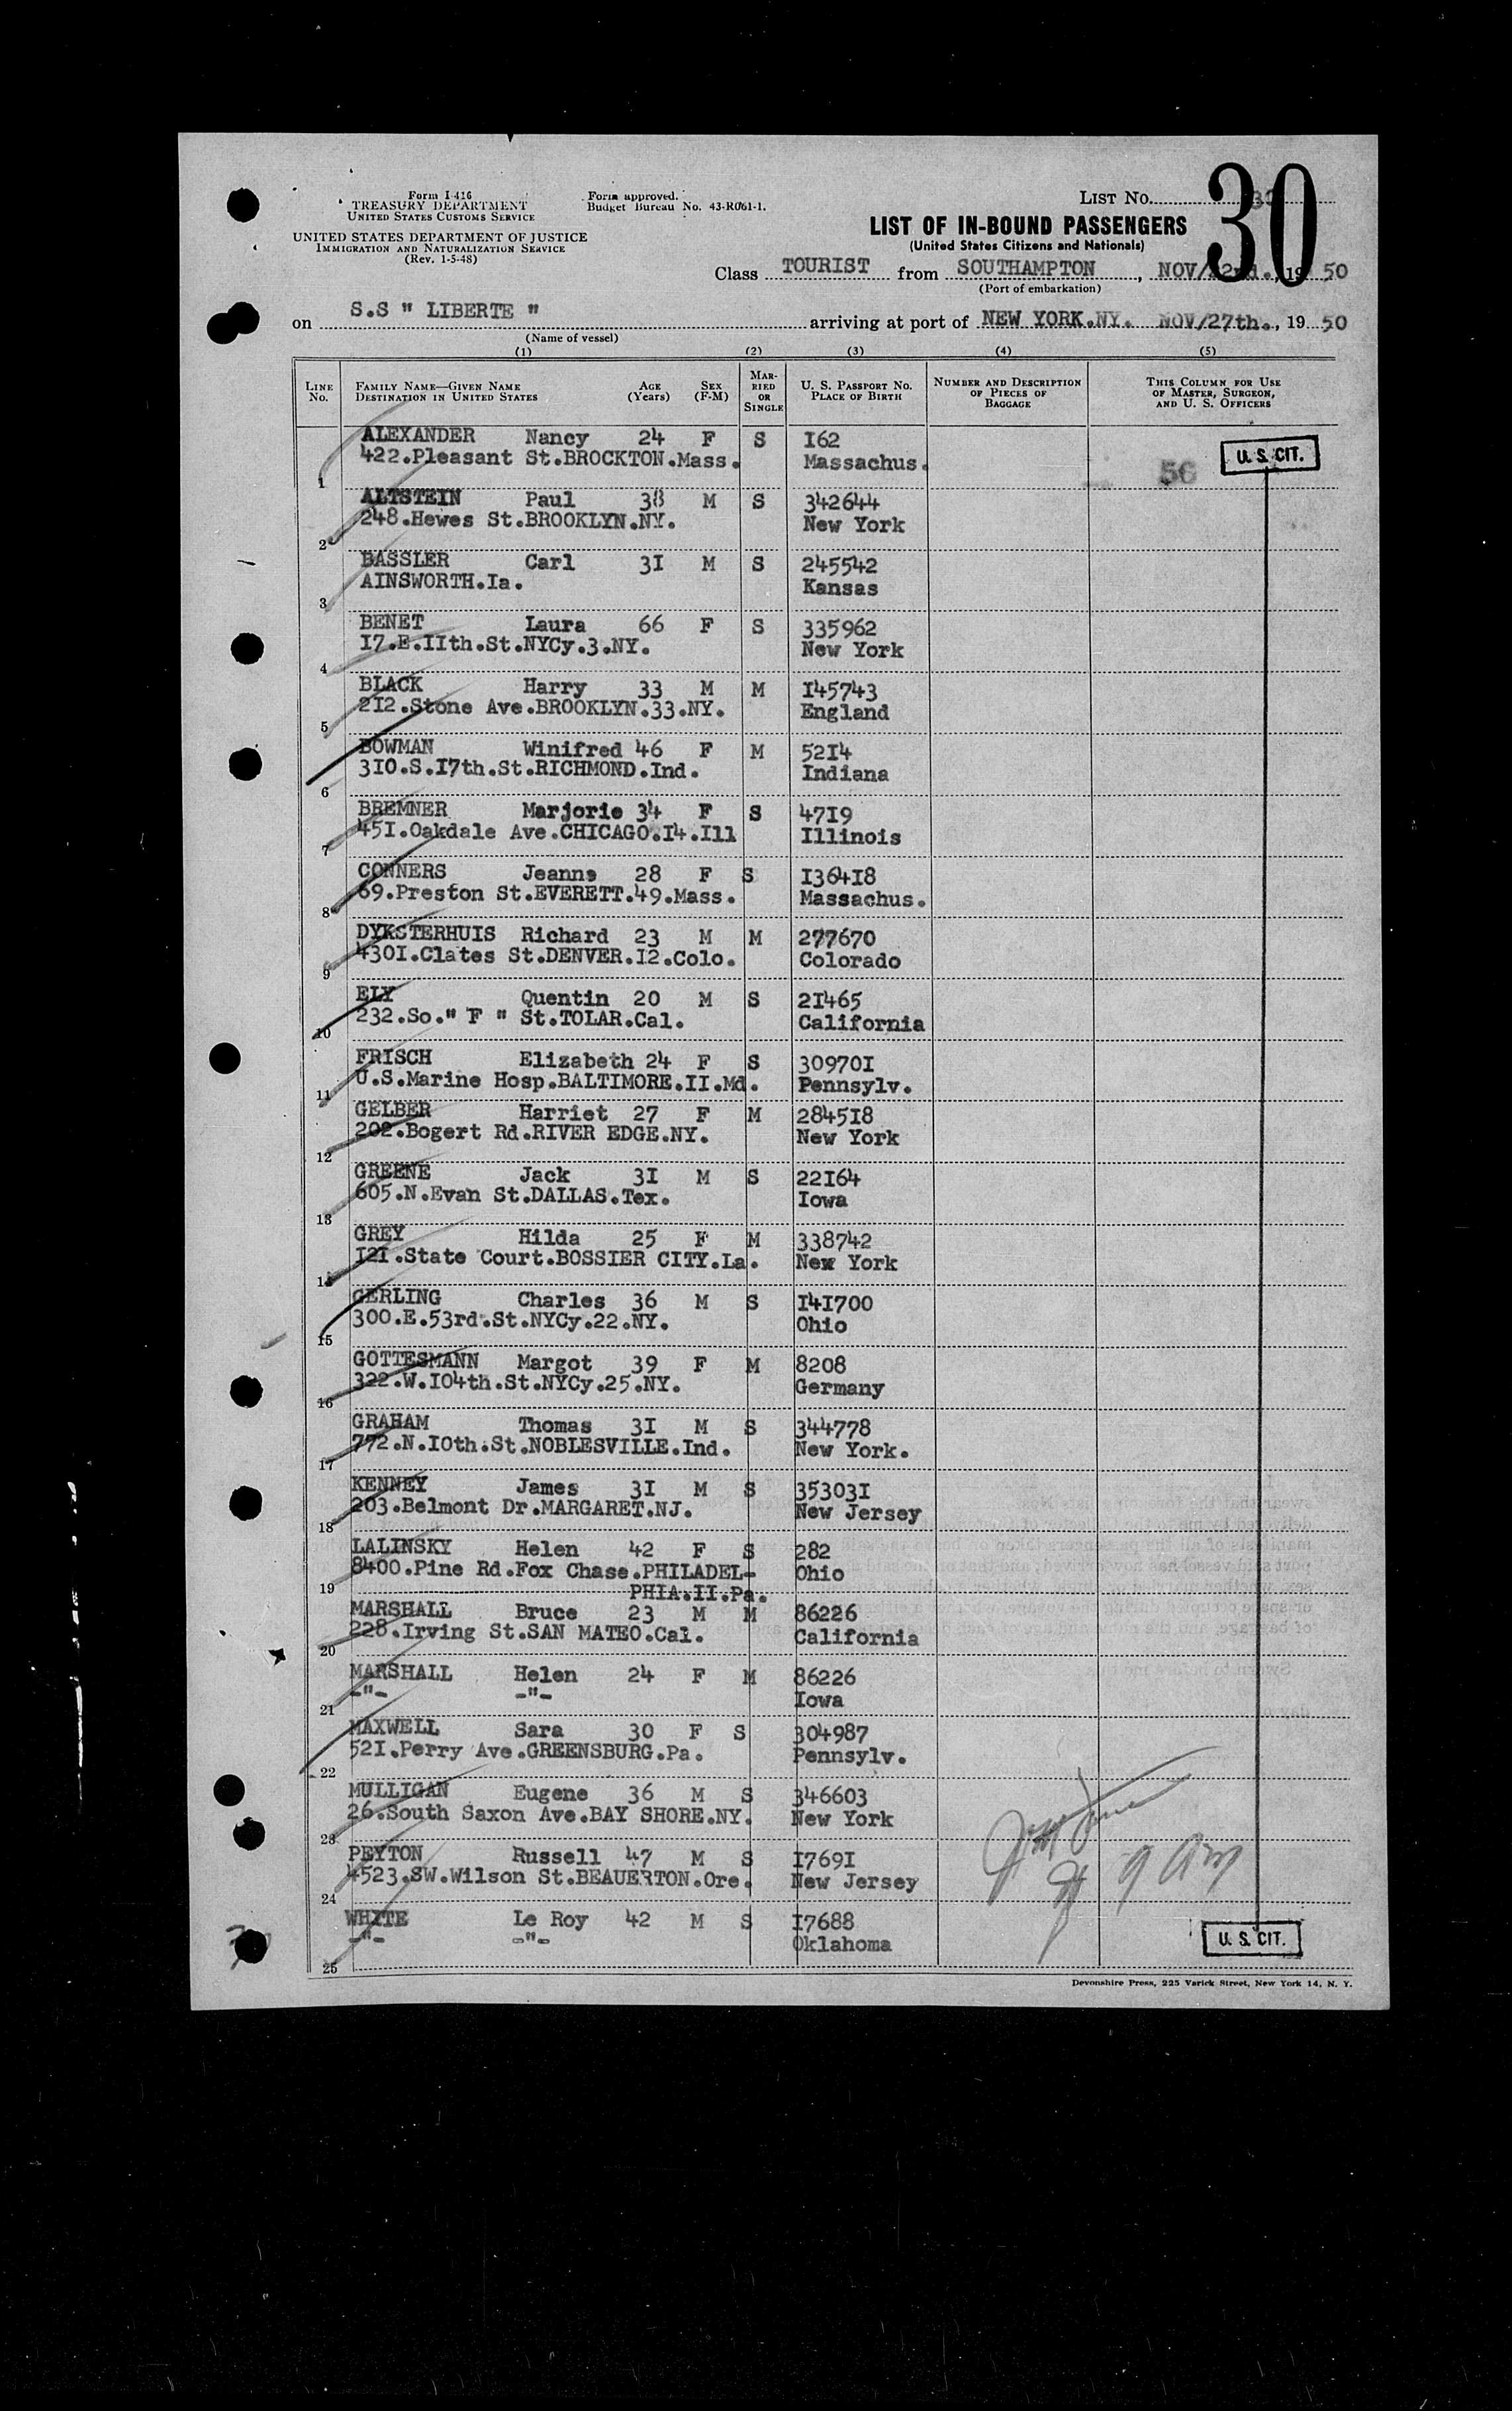 Form I-416
TREASURY DEPARTMENT
UNITED STATES CUSTOMS SERVICE
UNITED STATES DEPARTMENT OF JUSTICE
IMMIGRATION AND NATURALIZATION SERVICE
(Rev. 1-5-48)
Form approved.
Budget Bureau No. 43-R061-1.
LIST No. 30
LIST OF IN-BOUND PASSENGERS
(United States Citizens and Nationals)
Class TOURIST from SOUTHAMPTON, NOV/22nd., 19 50
(Port of embarkation)
on S.S " LIBERTE " arriving at port of NEW YORK.NY. NOV/27th., 19 50
(Name of vessel)
(1) (2) (3) (4) (5)
LINE No. FAMILY NAME—GIVEN NAME DESTINATION IN UNITED STATES AGE (Years) SEX (F-M) MARRIED OR SINGLE U. S. PASSPORT No. PLACE OF BIRTH NUMBER AND DESCRIPTION OF PIECES OF BAGGAGE THIS COLUMN FOR USE OF MASTER, SURGEON, AND U. S. OFFICERS
ALEXANDER Nancy 24 F S I62 56 U. S. CIT.
1 422.Pleasant St.BROCKTON.Mass. Massachus.
ALTSTEIN Paul 38 M S 342644
2 248.Hewes St.BROOKLYN.NY. New York
BASSLER Carl 3I M S 245542
3 AINSWORTH.Ia. Kansas
BENET Laura 66 F S 335962
4 I7.E.IIth.St.NYCy.3.NY. New York
BLACK Harry 33 M M I45743
5 2I2.Stone Ave.BROOKLYN.33.NY. England
BOWMAN Winifred 46 F M 52I4
6 3I0.S.I7th.St.RICHMOND.Ind. Indiana
BREMNER Marjorie 34 F S 47I9
7 45I.Oakdale Ave.CHICAGO.I4.Ill Illinois
CONNERS Jeanne 28 F S I364I8
8 69.Preston St.EVERETT.49.Mass. Massachus.
DYKSTERHUIS Richard 23 M M 277670
9 430I.Clates St.DENVER.I2.Colo. Colorado
ELY Quentin 20 M S 2I465
10 232.So." F " St.TOLAR.Cal. California
FRISCH Elizabeth 24 F S 30970I
11 U.S.Marine Hosp.BALTIMORE.II.Md. Pennsylv.
GELBER Harriet 27 F M 2845I8
12 202.Bogert Rd.RIVER EDGE.NY. New York
GREENE Jack 3I M S 22I64
13 605.N.Evan St.DALLAS.Tex. Iowa
GREY Hilda 25 F M 338742
14 I2I.State Court.BOSSIER CITY.La. New York
GERLING Charles 36 M S I4I700
15 300.E.53rd.St.NYCy.22.NY. Ohio
GOTTESMANN Margot 39 F M 8208
16 322.W.I04th.St.NYCy.25.NY. Germany
GRAHAM Thomas 3I M S 344778
17 772.N.I0th.St.NOBLESVILLE.Ind. New York.
KENNEY James 3I M S 35303I
18 203.Belmont Dr.MARGARET.NJ. New Jersey
LALINSKY Helen 42 F S 282
8400.Pine Rd.Fox Chase.PHILADEL- Ohio
19 PHIA.II.Pa.
MARSHALL Bruce 23 M M 86226
20 228.Irving St.SAN MATEO.Cal. California
MARSHALL Helen 24 F M 86226
21 -"- -"- Iowa
MAXWELL Sara 30 F S 304987
22 52I.Perry Ave.GREENSBURG.Pa. Pennsylv.
MULLIGAN Eugene 36 M S 346603
23 26.South Saxon Ave.BAY SHORE.NY. New York
PEYTON Russell 47 M S I769I
24 4523.SW.Wilson St.BEAUERTON.Ore. New Jersey
WHITE Le Roy 42 M S I7688
25 -"- -"- Oklahoma U. S. CIT.
Devonshire Press, 225 Varick Street, New York 14, N. Y.